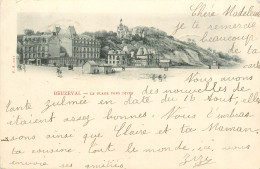 Chère Madeleine
je te remercie
beaucoup
de ta
HEUZEVAL. — LA PLAGE VERS
Nous avons
des nouvelles de
tante Zulmée en date du 16 Aout, elles
étaient assez bonnes. Nous t'embras
sons ainsi que Claire et ta Maman.
ta cousine. Tout le monde ici vous
envoie ses amitiés.